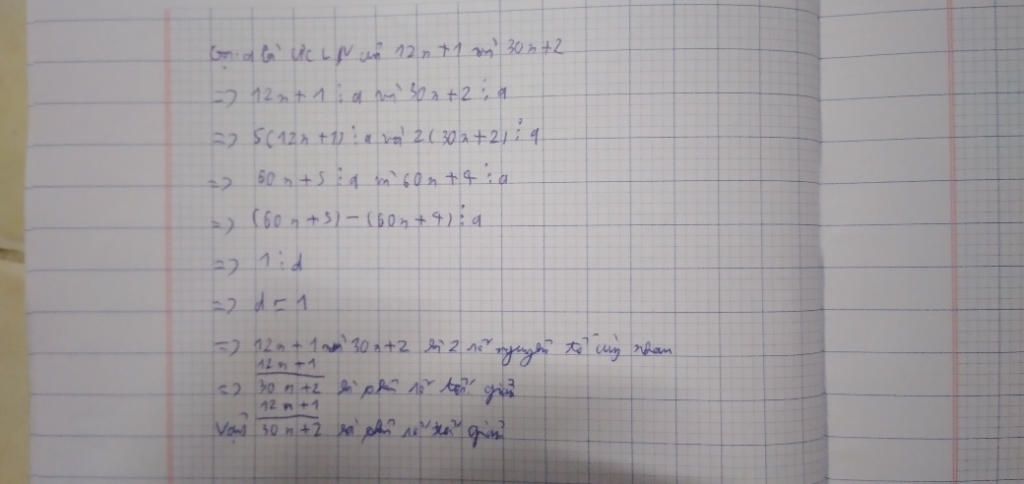 Gọi d là ƯCLN của 12n+1 và 30n+2
=> 12n+1 ⋮ d và 30n+2 ⋮ d
=> 5(12n+1) ⋮ d và 2(30n+2) ⋮ d
=> 60n+5 ⋮ d và 60n+4 ⋮ d
=> (60n+5)-(60n+4) ⋮ d
=> 1 ⋮ d
=> d = 1
=> 12n+1 và 30n+2 là 2 số nguyên tố cùng nhau
=> \frac{12n+1}{30n+2} là phân số tối giản
Vậy \frac{12n+1}{30n+2} là phân số tối giản